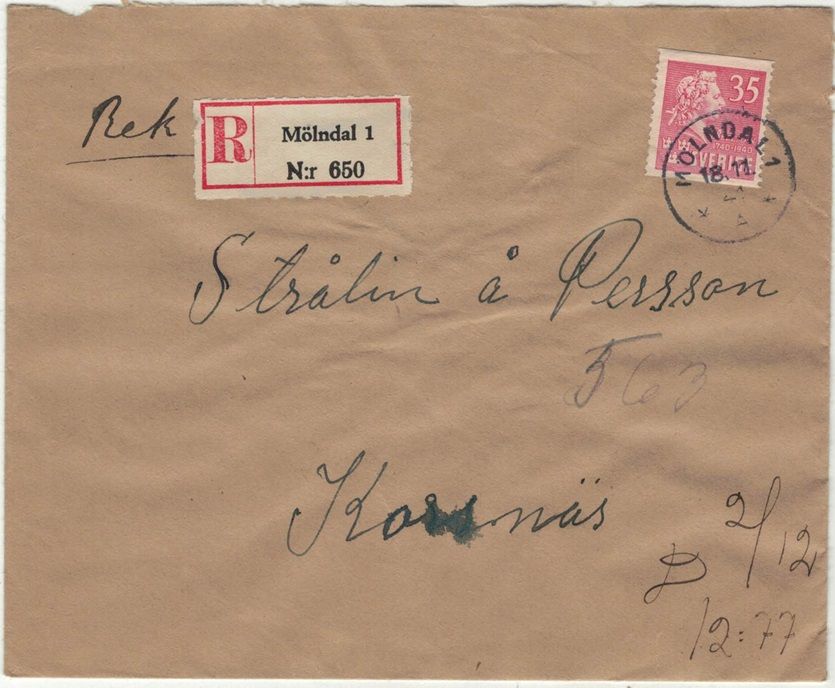 Rek
R
Mölndal 1
N:r 650
35
1740-1940
SVERIGE
MÖLNDAL 1
18.11.
Strålin å Persson
563
Korsnäs
D 2/12
12:77